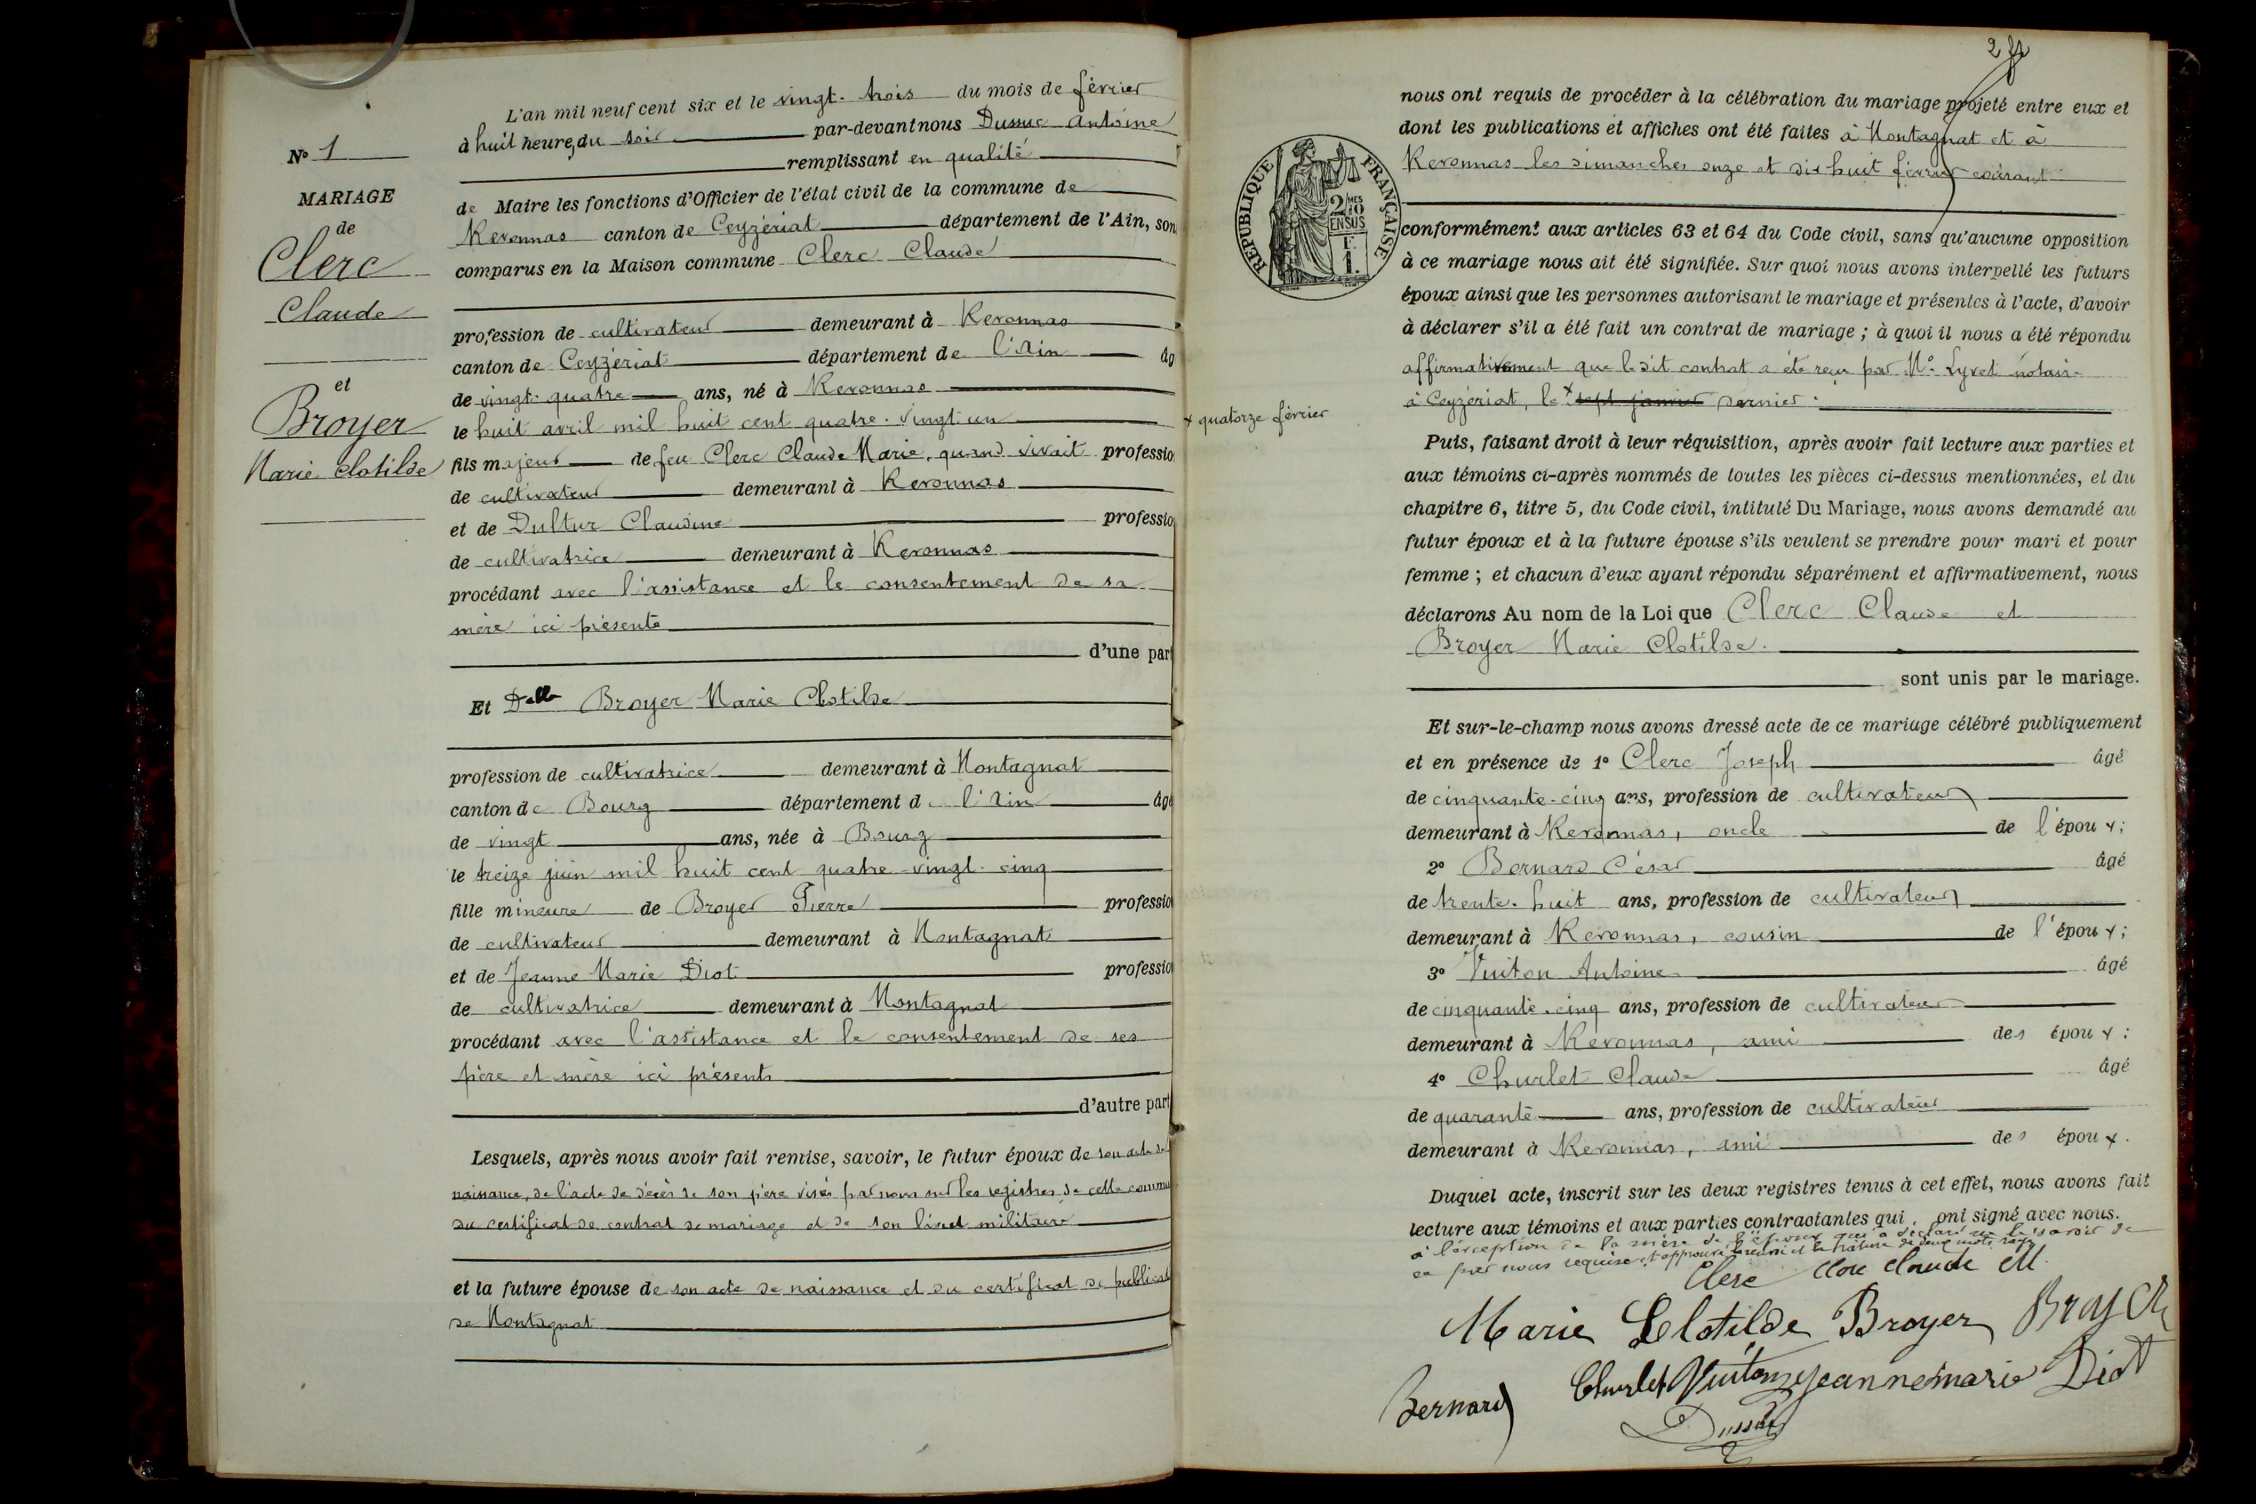 N° 1
MARIAGE
de
Clerc
Claude
et
Broyer
Marie Clotilde
L'an mil neuf cent six et le vingt-trois du mois de février
à huit heure, du soir par-devant nous Dussuc Antoine
remplissant en qualité
de Maire les fonctions d'Officier de l'état civil de la commune de
Revonnas canton de Ceyzériat département de l'Ain, son
comparus en la Maison commune Clerc Claude
profession de cultivateur demeurant à Revonnas
canton de Ceyzériat département de l'Ain âg
de vingt-quatre ans, né à Revonnas
le huit avril mil huit cent quatre-vingt-un
fils majeur de feu Clerc Claude Marie, quand vivait professio
de cultivateur demeurant à Revonnas
et de Dultur Claudine professio
de cultivatrice demeurant à Revonnas
procédant avec l'assistance et le consentement de sa
mère ici présente
d'une part
Et Delle Broyer Marie Clotilde
profession de cultivatrice demeurant à Montagnat
canton de Bourg département de l'Ain âgé
de vingt ans, née à Bourg
le treize juin mil huit cent quatre-vingt-cinq
fille mineure de Broyer Pierre professio
de cultivateur demeurant à Montagnat
et de Jeanne Marie Diot professio
de cultivatrice demeurant à Montagnat
procédant avec l'assistance et le consentement de ses
père et mère ici présents
d'autre part
Lesquels, après nous avoir fait remise, savoir, le futur époux de son acte de
naissance, de l'acte de décès de son père visés par nous sur les registres de cette commu
du certificat de contrat de mariage et de son livret militaire
et la future épouse de son acte de naissance et du certificat de publicat
de Montagnat
2
nous ont requis de procéder à la célébration du mariage projeté entre eux et
dont les publications et affiches ont été faites à Montagnat et à
Revonnas les dimanches onze et dix huit février courant
RÉPUBLIQUE FRANÇAISE
2/10 MES
EN SUS
F.
1.
conformément aux articles 63 et 64 du Code civil, sans qu'aucune opposition
à ce mariage nous ait été signifiée. Sur quoi nous avons interpellé les futurs
époux ainsi que les personnes autorisant le mariage et présentes à l'acte, d'avoir
à déclarer s'il a été fait un contrat de mariage ; à quoi il nous a été répondu
affirmativement que le dit contrat a été reçu par M° Lyvet notaire
à Ceyzériat, le x sept janvier dernier.
x quatorze février
Puis, faisant droit à leur réquisition, après avoir fait lecture aux parties et
aux témoins ci-après nommés de toutes les pièces ci-dessus mentionnées, et du
chapitre 6, titre 5, du Code civil, intitulé Du Mariage, nous avons demandé au
futur époux et à la future épouse s'ils veulent se prendre pour mari et pour
femme ; et chacun d'eux ayant répondu séparément et affirmativement, nous
déclarons Au nom de la Loi que Clerc Claude et
Broyer Marie Clotilde.
sont unis par le mariage.
Et sur-le-champ nous avons dressé acte de ce mariage célébré publiquement
et en présence de 1° Clerc Joseph âgé
de cinquante-cinq ans, profession de cultivateur
demeurant à Revonnas, oncle de l'époux ;
2° Bernard César âgé
de trente-huit ans, profession de cultivateur
demeurant à Revonnas, cousin de l'époux ;
3° Vuiton Antoine âgé
de cinquante-cinq ans, profession de cultivateur
demeurant à Revonnas, ami des époux :
4° Churlet Claude âgé
de quarante ans, profession de cultivateur
demeurant à Revonnas, ami des époux.
Duquel acte, inscrit sur les deux registres tenus à cet effet, nous avons fait
lecture aux témoins et aux parties contractantes qui ont signé avec nous.
à l'exception de la mère de l'époux qui a déclaré ne le savoir de
ce par nous requise. approuvé le renvoi et la rature de deux mots rayés
Clerc Clerc Claude M.
Marie Clotilde Broyer Broyer
Bernard Churlet Vuiton Jeanne marie Diot
Dussuc